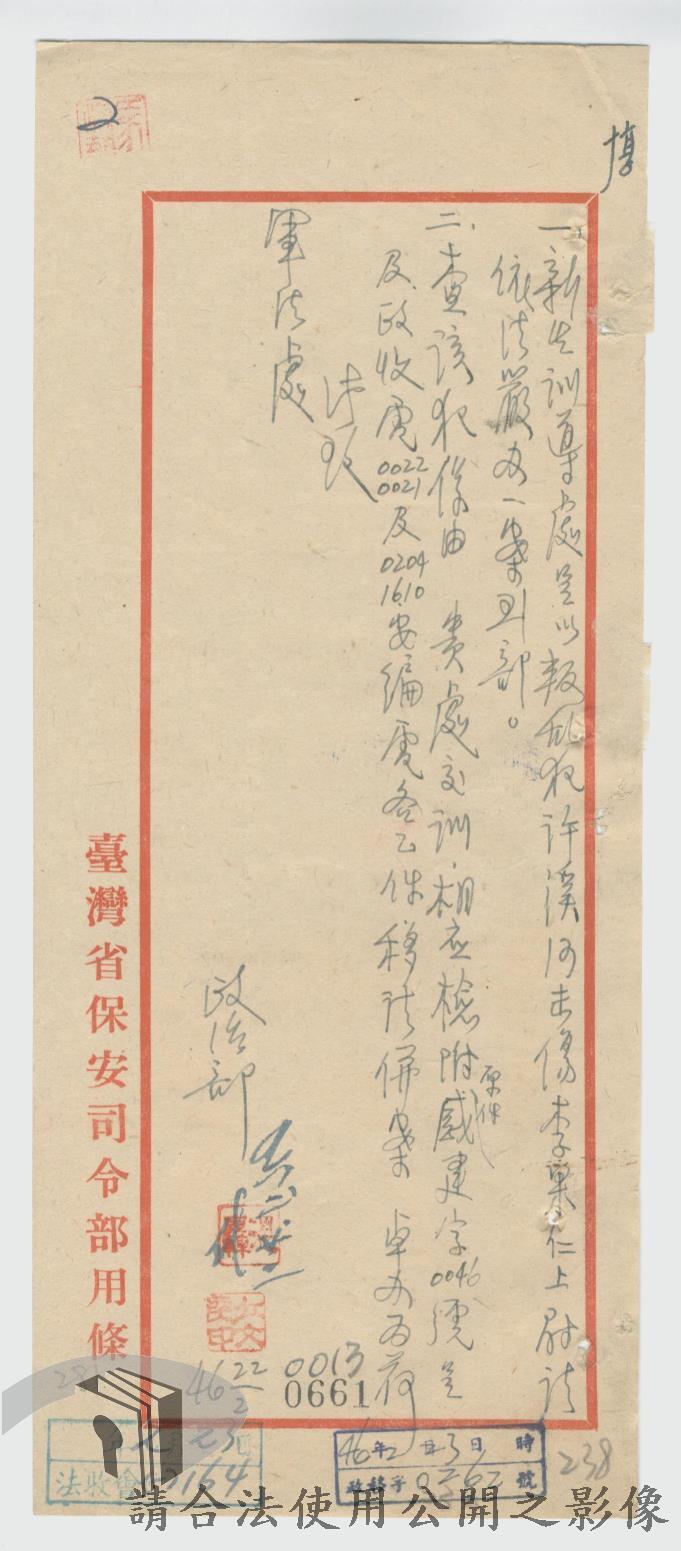 博
一、新生訓導處呈以叛乱犯許溪河击傷李果仁上尉請
依法嚴办一案到部。
二、查該犯係由 貴處交訓,相应檢附感建字0046號呈
原件
及政收電0022 0021及0204 1610安編電各乙件移請併案 卓办為荷
此致
軍法處
政治部
46 22/2
0013
0661
臺灣省保安司令部用條
46年2月23日 時
政 字 0262 號
法收會 0164
238
請合法使用公開之影像